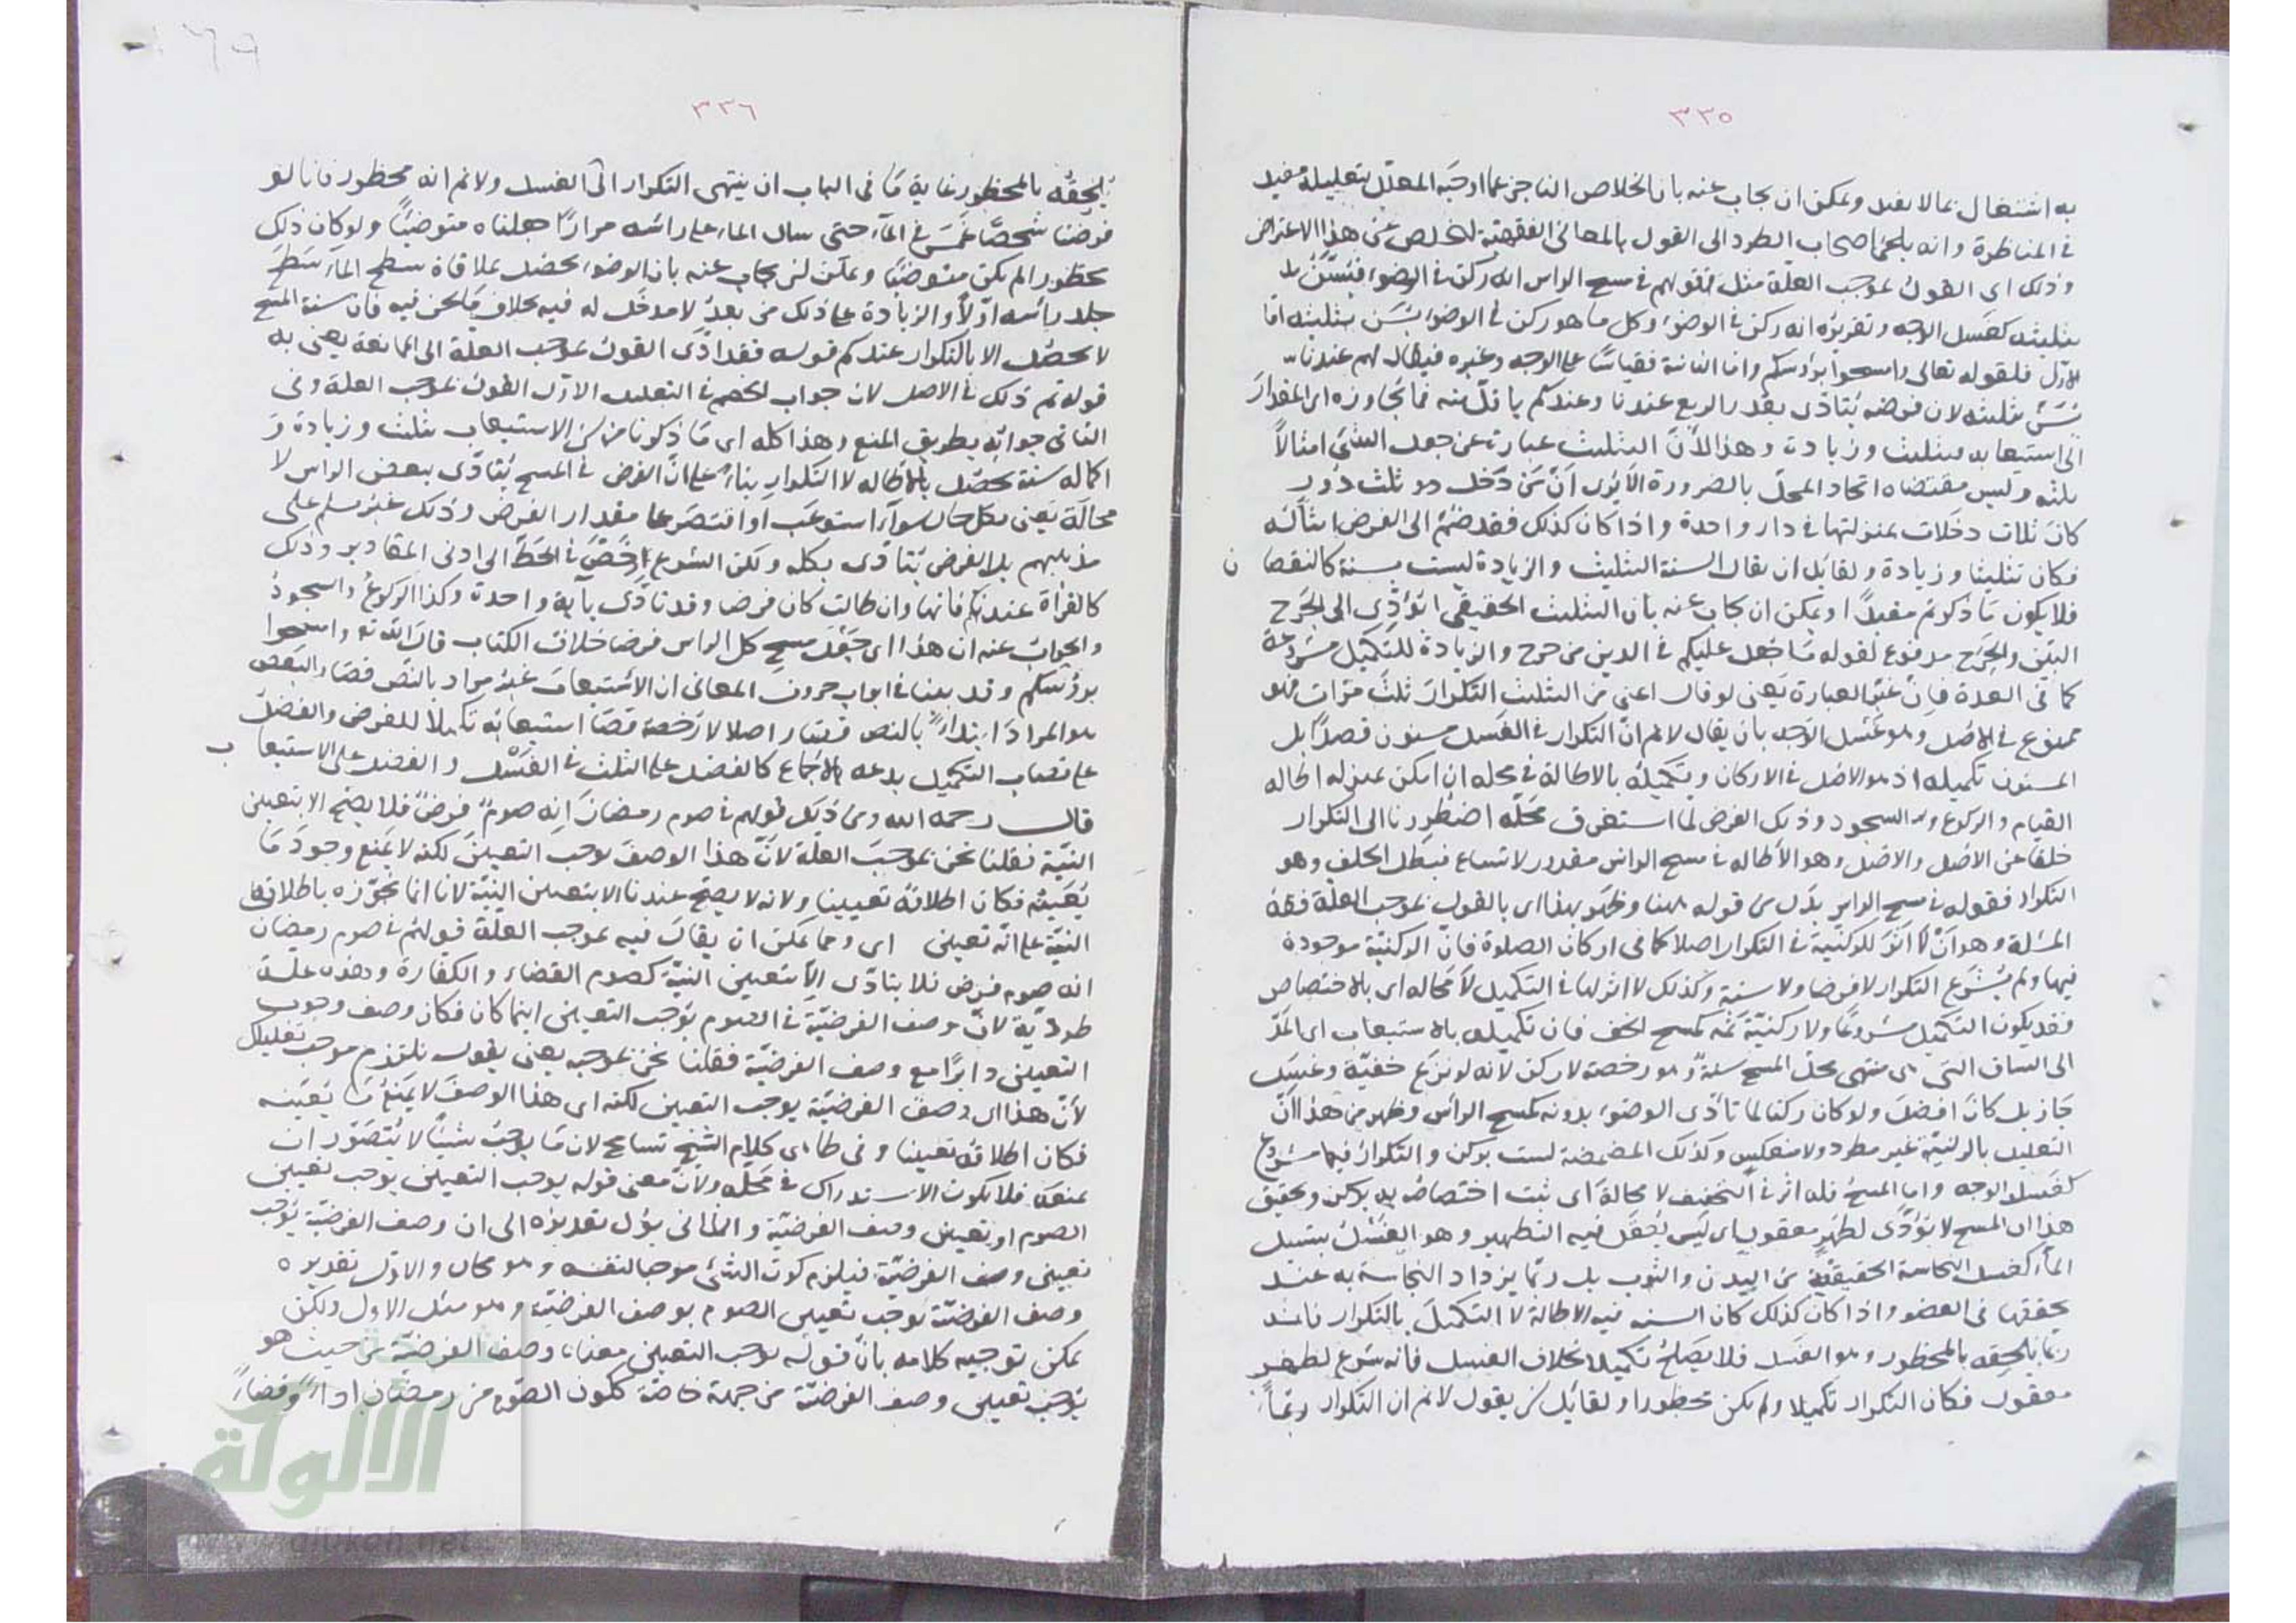 ٣٣٥
به اشتغال بما لا يفيد ويمكن ان يجاب عنه بان الخلاص الناجز عما اوجبه المعلل بتعليله مفيد
في المناظرة وانه يلجئ اصحاب الطرد الى القول بالمعاني الفقهية لتخلص عن هذا الاعتراض
وذلك اى القول بموجب العلة مثل قولهم في مسح الراس انه ركن في الوضوء فيسن
تثليثه كغسل الوجه وتقريره انه ركن في الوضوء وكل ما هو ركن في الوضوء يسن تثليثه اما
الاول فلقوله تعالى وامسحوا برؤسكم واما الثانية فقياسا على الوجه وغيره فيقال لهم عندنا
يسن تثليثه لان فرضه يتأدى بقدر الربع عندنا وعندكم باقل منه فما يجاوزه اى المقدار
الى استيعابه فتثليث وزيادة وهذا لأن التثليث عبارة عن جعل الشئ امثالاً
ثلثه وليس مقتضاه اتحاد المحل بالضرورة الا يرى ان من دخل ثلث دور
كان ثلاث دخلات بمنزلتها في دار واحدة واذا كان كذلك فقد ضم الى الفرض امثاله
فكان تثليثا وزيادة ولقائل ان يقال السنة التثليث والزيادة ليست بسنة كالنقصان
فلا يكون ما ذكرتم مفيدا ويمكن ان يجاب عنه بان التثليث الحقيقي يؤدى الى الحرج
البين والحرج مدفوع لقوله ما جعل عليكم في الدين من حرج والزيادة للتكميل مشروعة
كما في العدة فان غير العبارة يعني لو قال اعني من التثليث التكرار ثلث مرات فهو
ممنوع في الاصل وهو غسل الوجه بان يقال لانم ان التكرار في الغسل مسنون قصداً بل
المسنون تكميله اذ هو الاصل في الاركان وتكميله بالاطالة في محله ان امكن بمنزلة اطالة
القيام والركوع والسجود وذلك الفرض لما استغرق محله اضطررنا الى التكرار
خلفا عن الاصل والاصل وهو الاطاله في مسح الراس مقدور لاتساع فبطل الخلف وهو
التكرار فقوله في مسح الراس بدل من قوله هنا وظهر بهذا اى بالقول بموجب العلة فقه
المسئلة وهو ان لا اثر للركنية في التكرار اصلا كما في اركان الصلوة فان الركنية موجودة
فيها ولم يشرع التكرار لا فرضا ولا سنة وكذلك لا اثر لها في التكميل لا محاله اى بالاختصاص
فقد يكون التكميل مشروعا ولا ركنية ثمه كمسح الخف فان تكميله بالاستيعاب اى المد
الى الساق التي هى منتهى محل المسح سنة وهو رخصة لا ركن لانه لو نزع خفيه وغسل
جاز بل كان افضل ولو كان ركنا لما تأدى الوضوء بدونه كمسح الراس وظهر من هذا ان
التعليل بالركنية غير مطرد ولا منعكس وكذلك المضمضة ليست بركن والتكرار فيها مشروع
كغسل الوجه واما المسح فله اثر في التخفيف لا محالة اى ثبت اختصاص به بركن وتحقيق
هذا ان المسح لا يؤدى لطهر معقول اى ليس يعقل فيه التطهير وهو الغسل بتسييل
الماء كغسل النجاسة الحقيقية من البدن والثوب بل ربما يزداد النجاسة به عند
تحققها في العضو واذا كان كذلك كان السنة فيه الاطالة لا التكميل بالتكرار فانه
ربما يلحقه بالمحظور وهو الغسل فلا يصلح تكميلا بخلاف الغسل فانه شرع لطهر
معقول فكان التكرار تكميلا ولم يكن محظورا ولقائل ان يقول لانم ان التكرار ربما
٣٣٦
يلحقه بالمحظور غاية ما في الباب ان ينتهى التكرار الى الغسل ولانم انه محظور فانا لو
فرضنا شخصا غمس في الماء حتى سال الماء على رأسه مرارًا جعلناه متوضئًا ولو كان ذلك
محظورا لم يكن متوضئًا ويمكن ان يجاب عنه بان الوضوء يحصل بملاقاة سطح الماء سطح
جلد رأسه اولا والزيادة على ذلك من بعد لا مدخل له فيه بخلاف ما نحن فيه فان سنة المسح
لا يحصل الا بالتكرار عندكم قوله فقد ادى القول بموجب العلة الى الممانعة يعني به
قوله ثم ذلك في الاصل لان جواب الخصم في التعليل الاول القول بموجب العلة وفي
الثاني جوابه بطريق المنع وهذا كله اى ما ذكرنا من ان الاستيعاب تثليث وزيادة و
اكماله سنة يحصل بالاطاله لا التكرار بناء على ان الفرض في المسح يتأدى ببعض الراس لا
محالة يعني بكل حال سواء استوعب او اقتصر على مقدار الفرض وذلك غير مسلم على
مذهبهم بل الفرض يتأدى بكله ولكن الشرع رخص في الحط الى ادنى المقادير وذلك
كالقرأة عندكم فانها وان طالت كان فرضا وقد تأدى بآية واحدة وكذا الركوع والسجود
والجواب عنه ان هذا اى جعل مسح كل الراس فرضا خلاف الكتاب قال الله تعالى وامسحوا
برؤسكم وقد بينا في ابواب حروف المعاني ان الاستيعاب غير مراد بالنص فصار البعض
هو المراد ابتداءً بالنص فصار اصلا لا رخصة فصار استيعابه تكميلا للفرض والفضل
على نصاب التكميل بدعة بالاجماع كالفضل على الثلث في الغسل والفضل على الاستيعاب
قال رحمه الله ومن ذلك قولهم في صوم رمضان انه صوم فرض فلا يصح الا بتعيين
النية فقلنا نحن بموجب العلة لأن هذا الوصف يوجب التعيين لكنه لا يمنع وجود ما
يعينه فكان اطلاقه تعيينا ولانه لا يصح عندنا الا بتعيين النية لانا انما نجوزه باطلاق
النية على انه تعيين اى ومما يمكن ان يقال فيه بموجب العلة قولهم في صوم رمضان
انه صوم فرض فلا يتأدى الا بتعيين النية كصوم القضاء والكفارة وهذه علة
طردية لان وصف الفرضية في الصوم يوجب التعيين اينما كان فكان وصف وجوب
التعيين دائرا مع وصف الفرضية فقلنا نحن بموجبه يعني يقول نلتزم موجب تعليلك
لان هذا اى وصف الفرضية يوجب التعيين لكنه اى هذا الوصف لا يمنع ما يعينه
فكان اطلاقه تعيينا وفي ظاهر كلام الشيخ تسامح لان ما يوجب شيئا لا يتصور ان
يمنعه فلا يكون الاستدراك في محله ولان معنى قوله يوجب التعيين يوجب تعيين
الصوم او تعيين وصف الفرضية والثاني يؤل تقديره الى ان وصف الفرضية يوجب
تعيين وصف الفرضية فيلزم كون الشئ موجبا لنفسه وهو محال والاول تقديره
وصف الفرضية يوجب تعيين الصوم بوصف الفرضية وهو مثل الاول ولكن
يمكن توجيه كلامه بان قوله يوجب التعيين معناه وصف الفرضية من حيث هو
يوجب تعيين وصف الفرضية من جهة خاصة ككون الصوم من رمضان اداءً وقضاءً
الألوكة
www.alukah.net